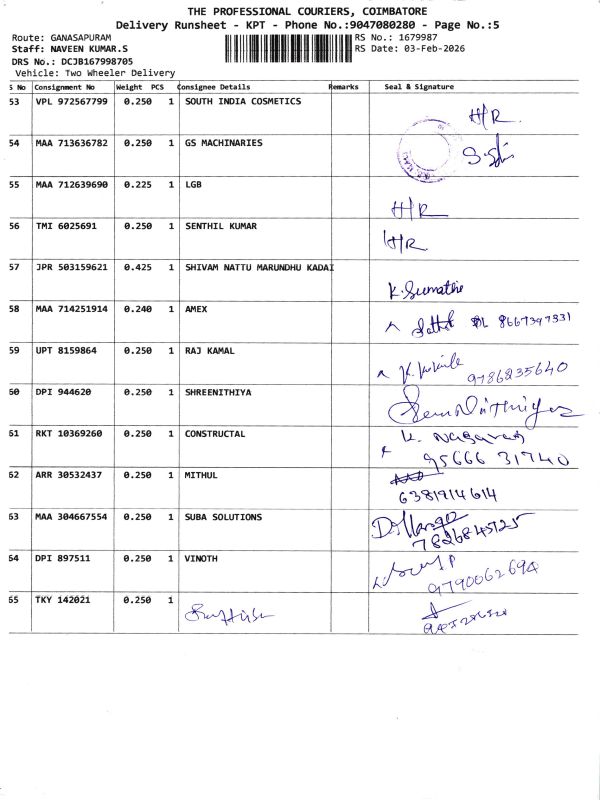 THE PROFESSIONAL COURIERS, COIMBATORE
Delivery Runsheet - KPT - Phone No.:9047080280 - Page No.:5
Route: GANASAPURAM RS No.: 1679987
Staff: NAVEEN KUMAR.S RS Date: 03-Feb-2026
DRS No.: DCJB167998705
Vehicle: Two Wheeler Delivery
S No Consignment No Weight PCS Consignee Details Remarks Seal & Signature
53 VPL 972567799 0.250 1 SOUTH INDIA COSMETICS H/R
54 MAA 713636782 0.250 1 GS MACHINARIES
55 MAA 712639690 0.225 1 LGB H/R
56 TMI 6025691 0.250 1 SENTHIL KUMAR H/R
57 JPR 503159621 0.425 1 SHIVAM NATTU MARUNDHU KADAI K.Sumathi
58 MAA 714251914 0.240 1 AMEX 8667397331
59 UPT 8159864 0.250 1 RAJ KAMAL 9786835640
60 DPI 944620 0.250 1 SHREENITHIYA
61 RKT 10369260 0.250 1 CONSTRUCTAL K. Nagaraj
95666 31740
62 ARR 30532437 0.250 1 MITHUL
6381914614
63 MAA 304667554 0.250 1 SUBA SOLUTIONS
7826845125
64 DPI 897511 0.250 1 VINOTH
9790062694
65 TKY 142021 0.250 1